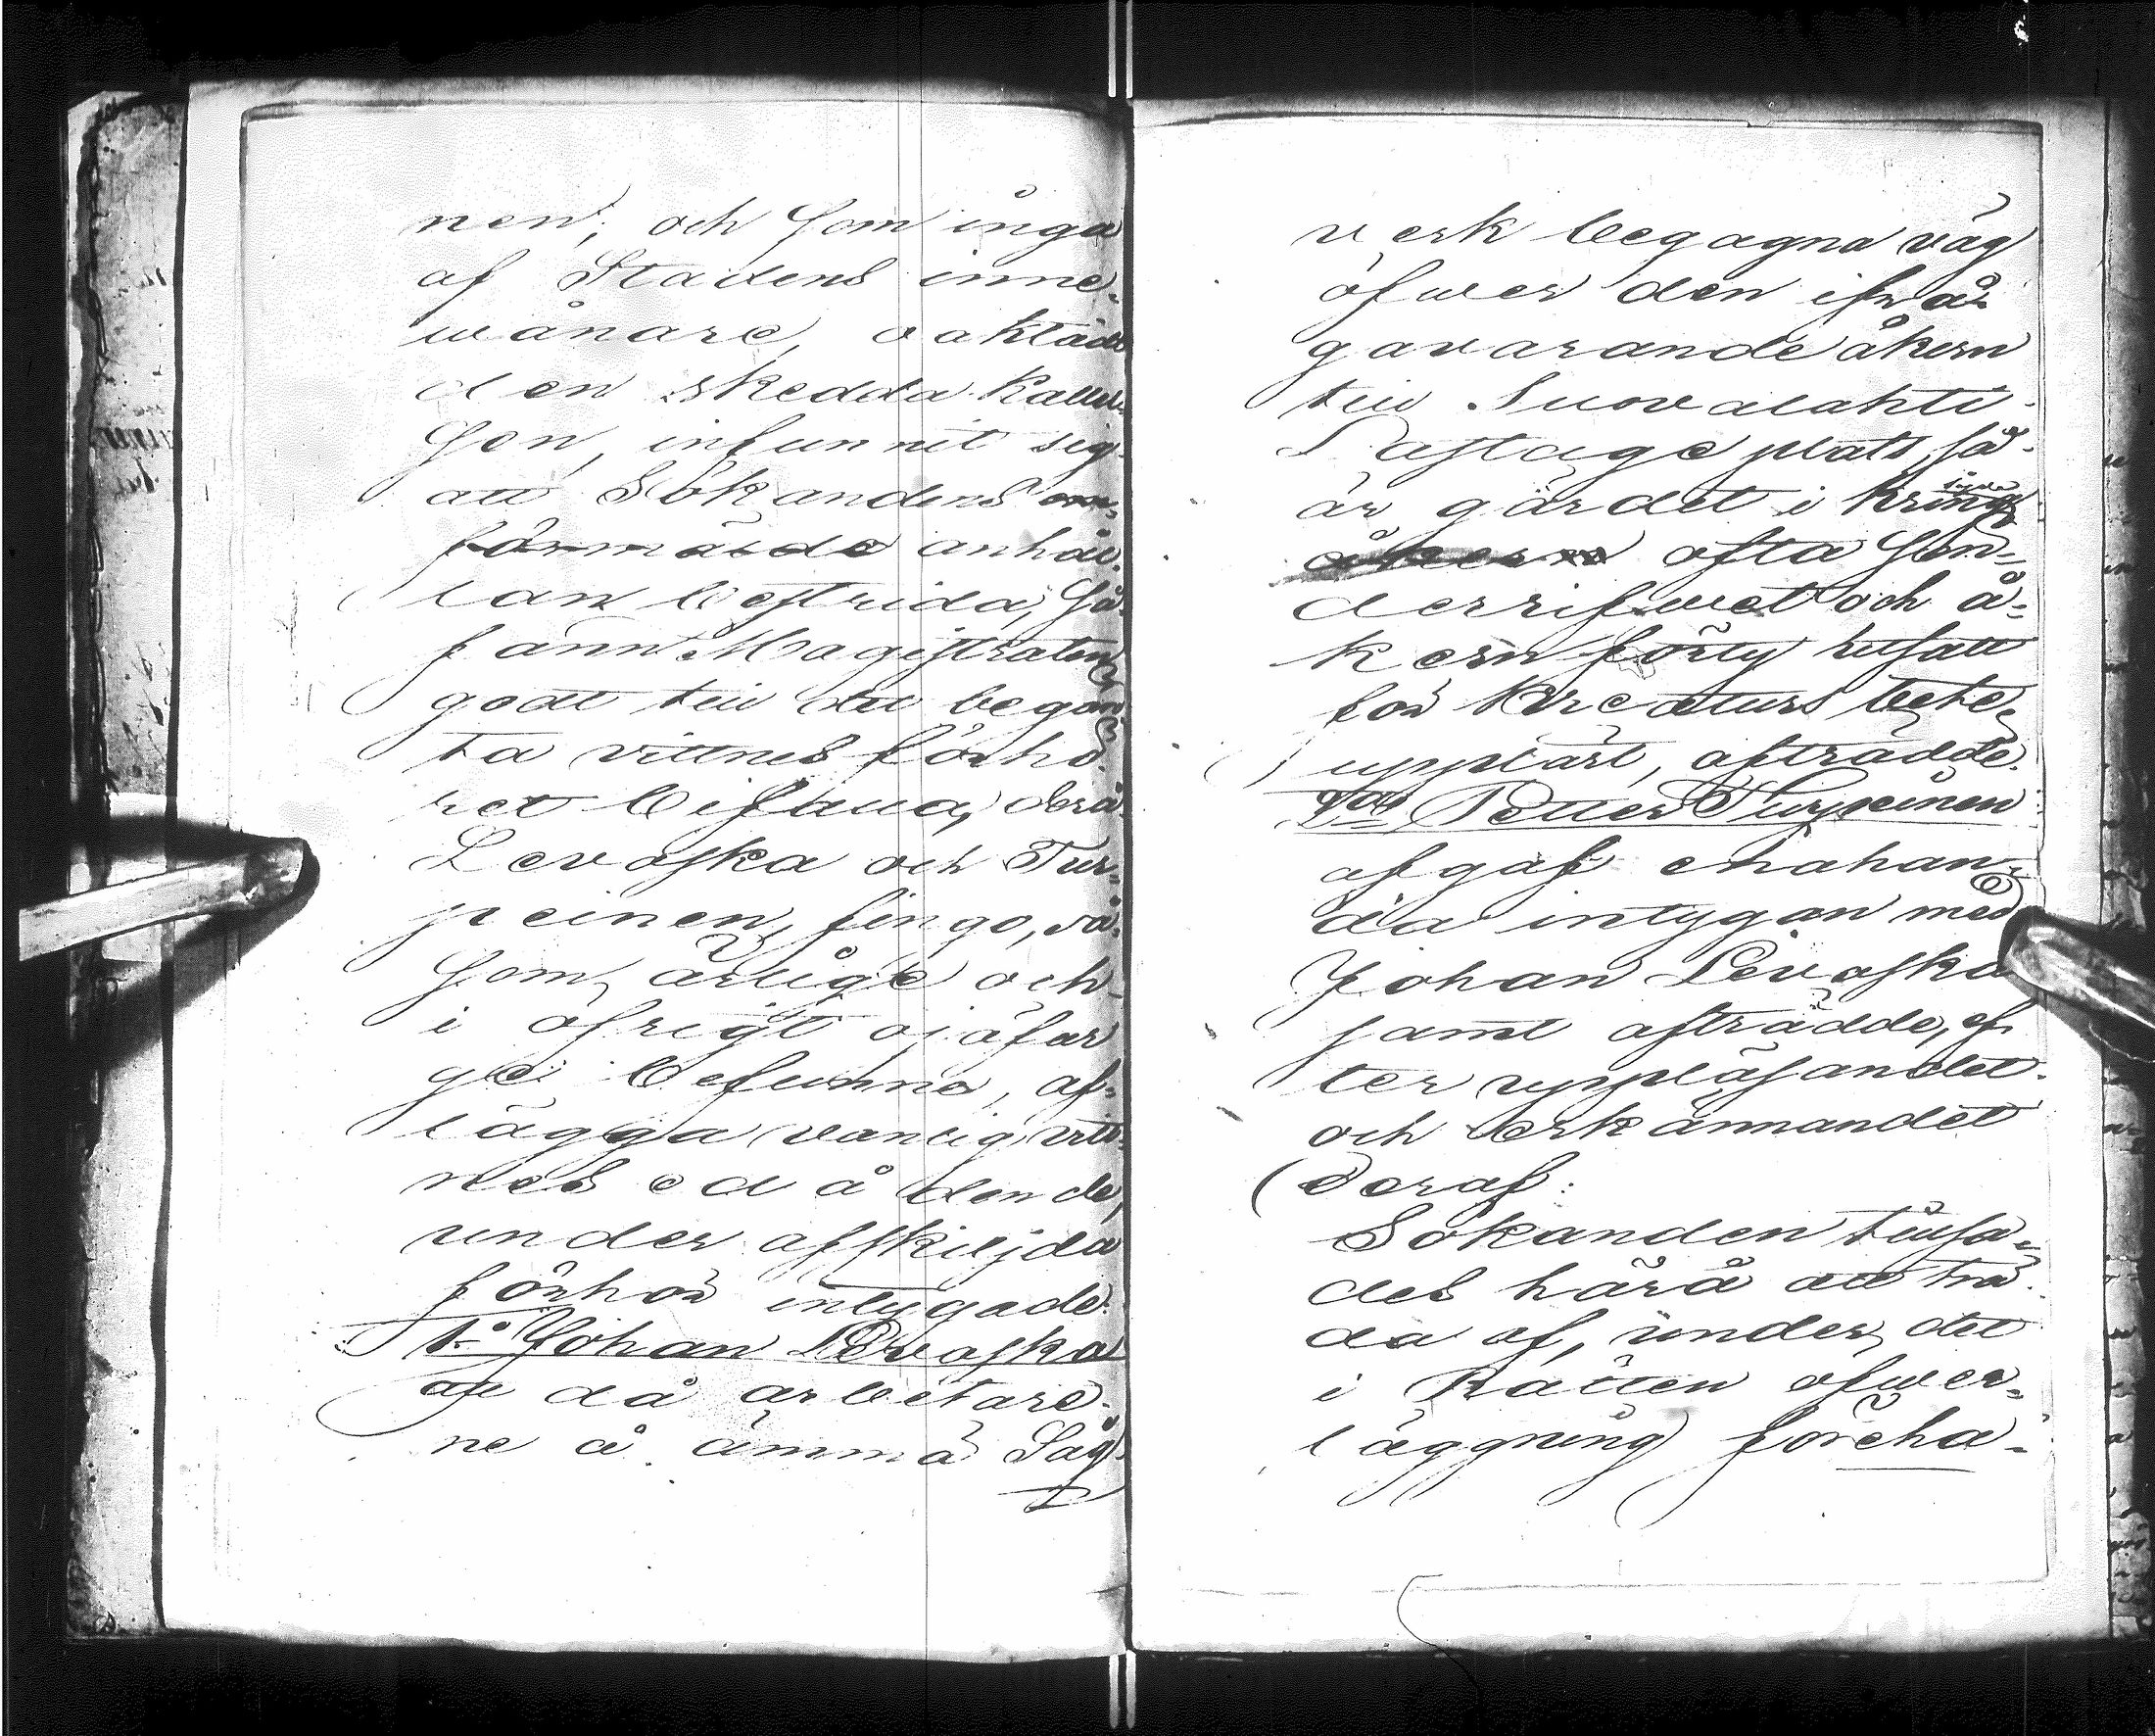 nen, och som inga
af Stadens inne-
wånare, oaktadt
den skedda Kallel-
sen, infunnit sig
att Sökandens om-
förmälde anhål-
lan bestrida, Så
fann Magistraten
godt till det begär-
ta vittnes förhö-
ret bifalla, derå
Levoska och Tur-
peinen, fingo, så-
som ärlige och
i öfrigt ojäfvi-
ge befunne, af-
lägga vanlig vitt-
nes ed å den de,
under afskiljda
förhör intygade
1o Johan Levoska
att då arbetare-
ne å ämma Såg-
verk begagna väg
öfwer den ifrå-
gavarande åkern
till Suovalahti
Lastage plats, så
är gärdet i kring
åkern ofta Sön-
derrifwet och å-
kern förty utsatt
för Kreaturs bete,
uppläst, afträdde.
2do Petter Turpeinen
afgaf enahan-
da intygan med
Johan Levoska
samt afträdde, ef-
ter uppläsandet
och Erkännandet
deraf:
Sökanden tillsa-
des härå att trä-
da af, under det
i Rätten öfwer-
läggningföreha-